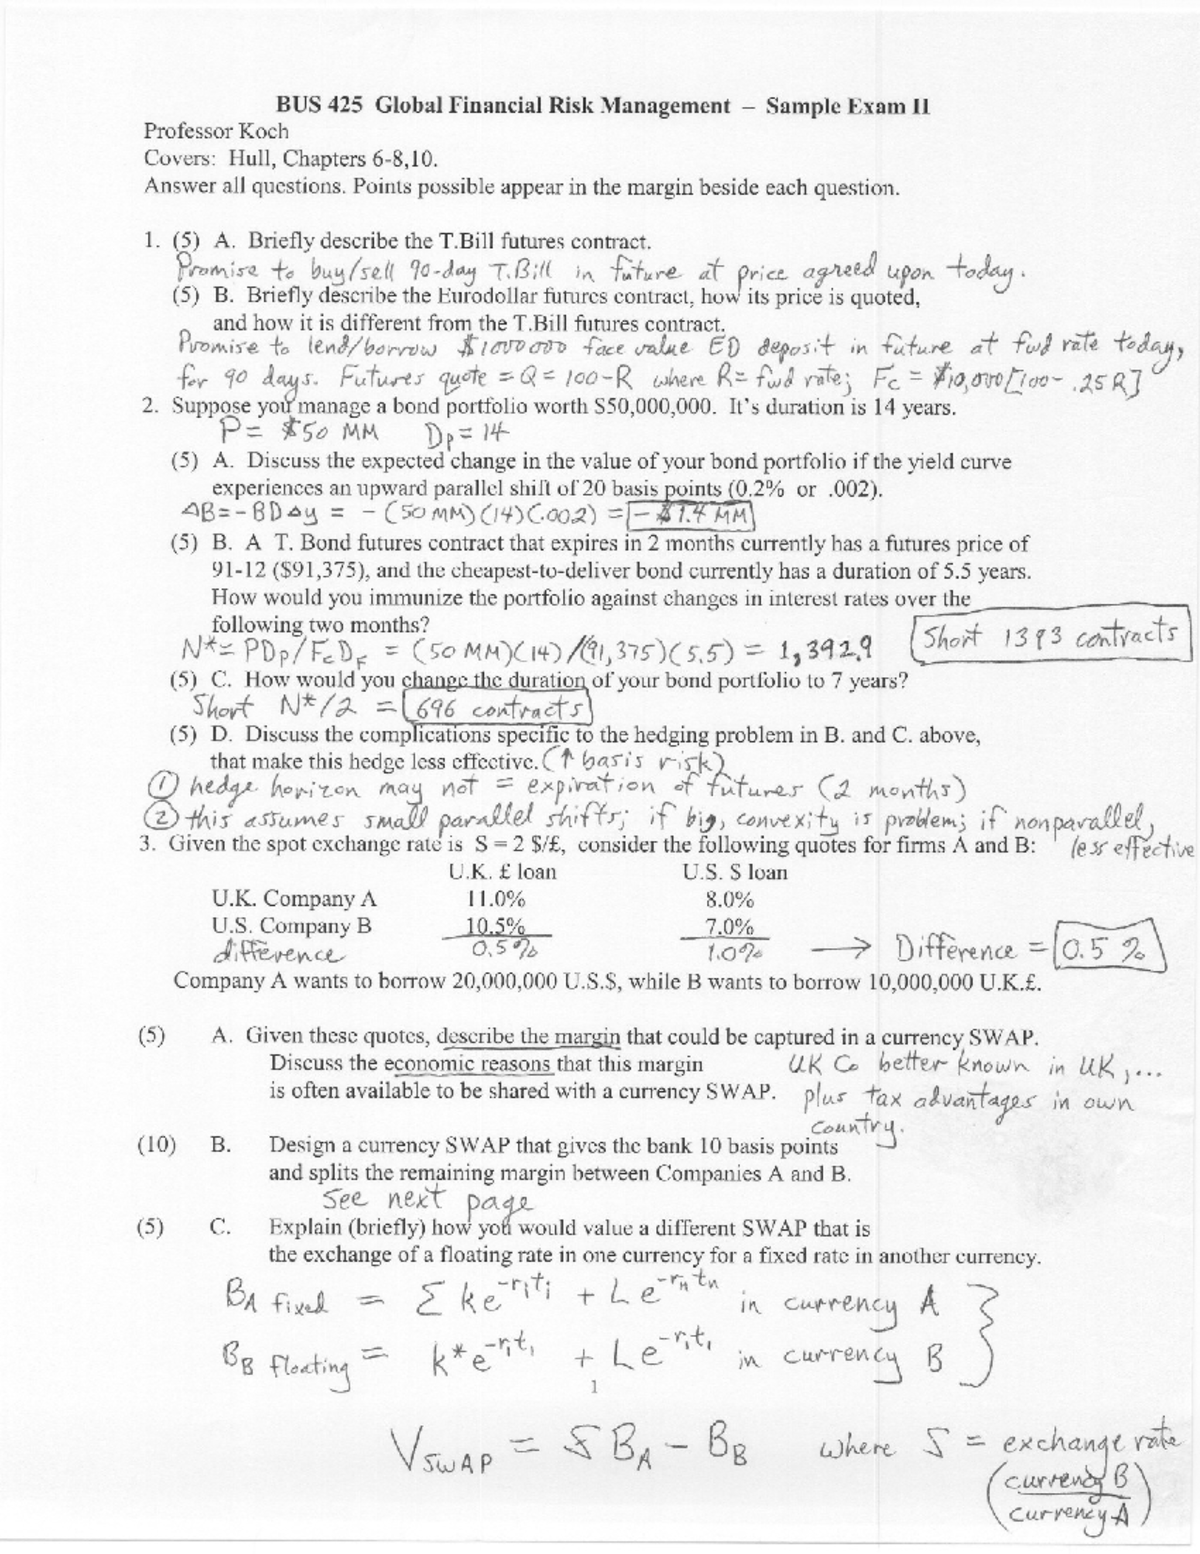 BUS 425 Global Financial Risk Management – Sample Exam II
Professor Koch
Covers: Hull, Chapters 6-8,10.
Answer all questions. Points possible appear in the margin beside each question.
1. (5) A. Briefly describe the T.Bill futures contract.
Promise to buy/sell 90-day T.Bill in future at price agreed upon today.
(5) B. Briefly describe the Eurodollar futures contract, how its price is quoted,
and how it is different from the T.Bill futures contract.
Promise to lend/borrow $1000000 face value ED deposit in future at fwd rate today,
for 90 days. Futures quote = Q = 100-R where R = fwd rate; Fc = $10,000[100- .25R]
2. Suppose you manage a bond portfolio worth $50,000,000. It's duration is 14 years.
P = $50 MM Dp = 14
(5) A. Discuss the expected change in the value of your bond portfolio if the yield curve
experiences an upward parallel shift of 20 basis points (0.2% or .002).
ΔB = -BDΔy = - (50 MM)(14)(.002) = - $1.4 MM
(5) B. A T. Bond futures contract that expires in 2 months currently has a futures price of
91-12 ($91,375), and the cheapest-to-deliver bond currently has a duration of 5.5 years.
How would you immunize the portfolio against changes in interest rates over the
following two months?
N* = PDp/FcDF = (50 MM)(14)/(91,375)(5.5) = 1,392.9 Short 1393 contracts
(5) C. How would you change the duration of your bond portfolio to 7 years?
Short N*/2 = 696 contracts
(5) D. Discuss the complications specific to the hedging problem in B. and C. above,
that make this hedge less effective. (↑ basis risk)
① hedge horizon may not = expiration of futures (2 months)
② this assumes small parallel shifts; if big, convexity is problem; if nonparallel,
less effective
3. Given the spot exchange rate is S = 2 $/£, consider the following quotes for firms A and B:
U.K. £ loan U.S. $ loan
U.K. Company A 11.0% 8.0%
U.S. Company B 10.5% 7.0%
difference 0.5% 1.0% → Difference = 0.5 %
Company A wants to borrow 20,000,000 U.S.$, while B wants to borrow 10,000,000 U.K.£.
(5) A. Given these quotes, describe the margin that could be captured in a currency SWAP.
Discuss the economic reasons that this margin UK Co better known in UK,...
is often available to be shared with a currency SWAP. plus tax advantages in own
country.
(10) B. Design a currency SWAP that gives the bank 10 basis points
and splits the remaining margin between Companies A and B.
See next page
(5) C. Explain (briefly) how you would value a different SWAP that is
the exchange of a floating rate in one currency for a fixed rate in another currency.
BA fixed = Σ ke^-riti + Le^-rntn in currency A
BB floating = k*e^-r1t1 + Le^-r1t1 in currency B
1
VSWAP = S BA - BB where S = exchange rate
(currency B
currency A)